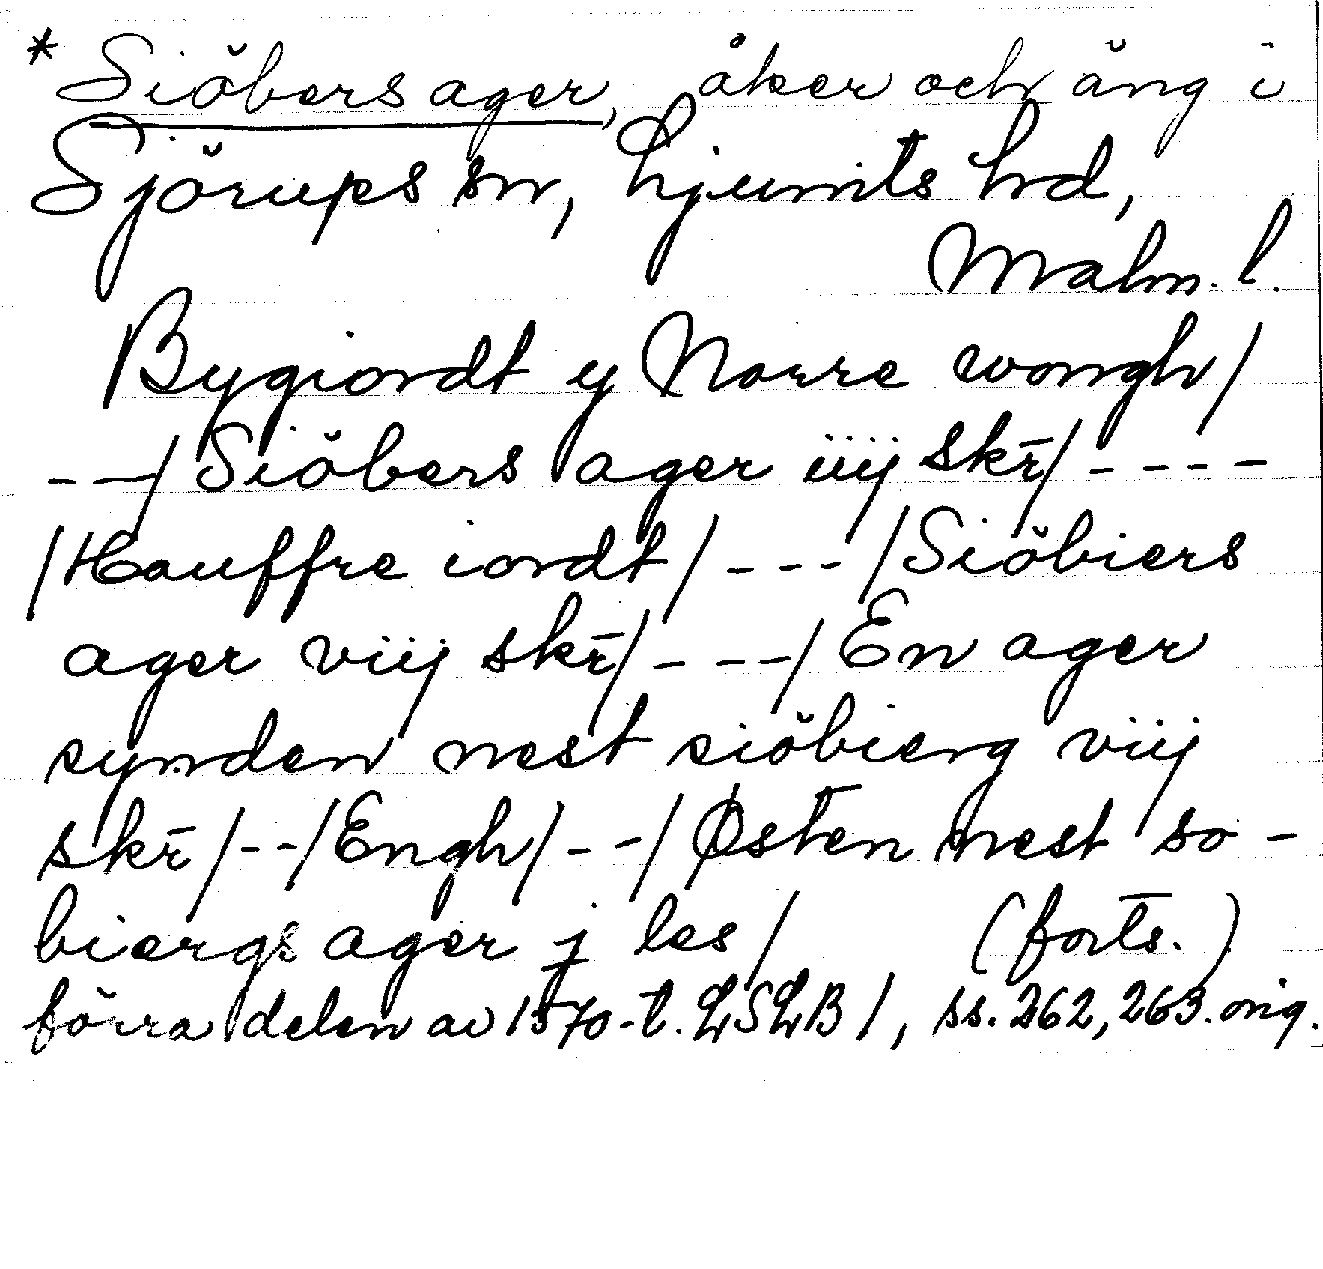 * Siöbers ager, åker och äng i
Sjörups sn, Ljunits hd,
Malm. l.
Bygiordt y Norre wongh/
- - -/ Siöbers ager iiij skr̄/ - - - -
/Hauffre iordt/ - - - /Siöbiers
ager viij skr̄/ - - - -/ En ager
synden nest siöbierg viij
skr̄ /- -/ Engh/ - -/ Østen nest so-
biergs ager j les/ (forts.)
förra delen av 1570-t. LSLB 1, ss. 262, 263. orig.